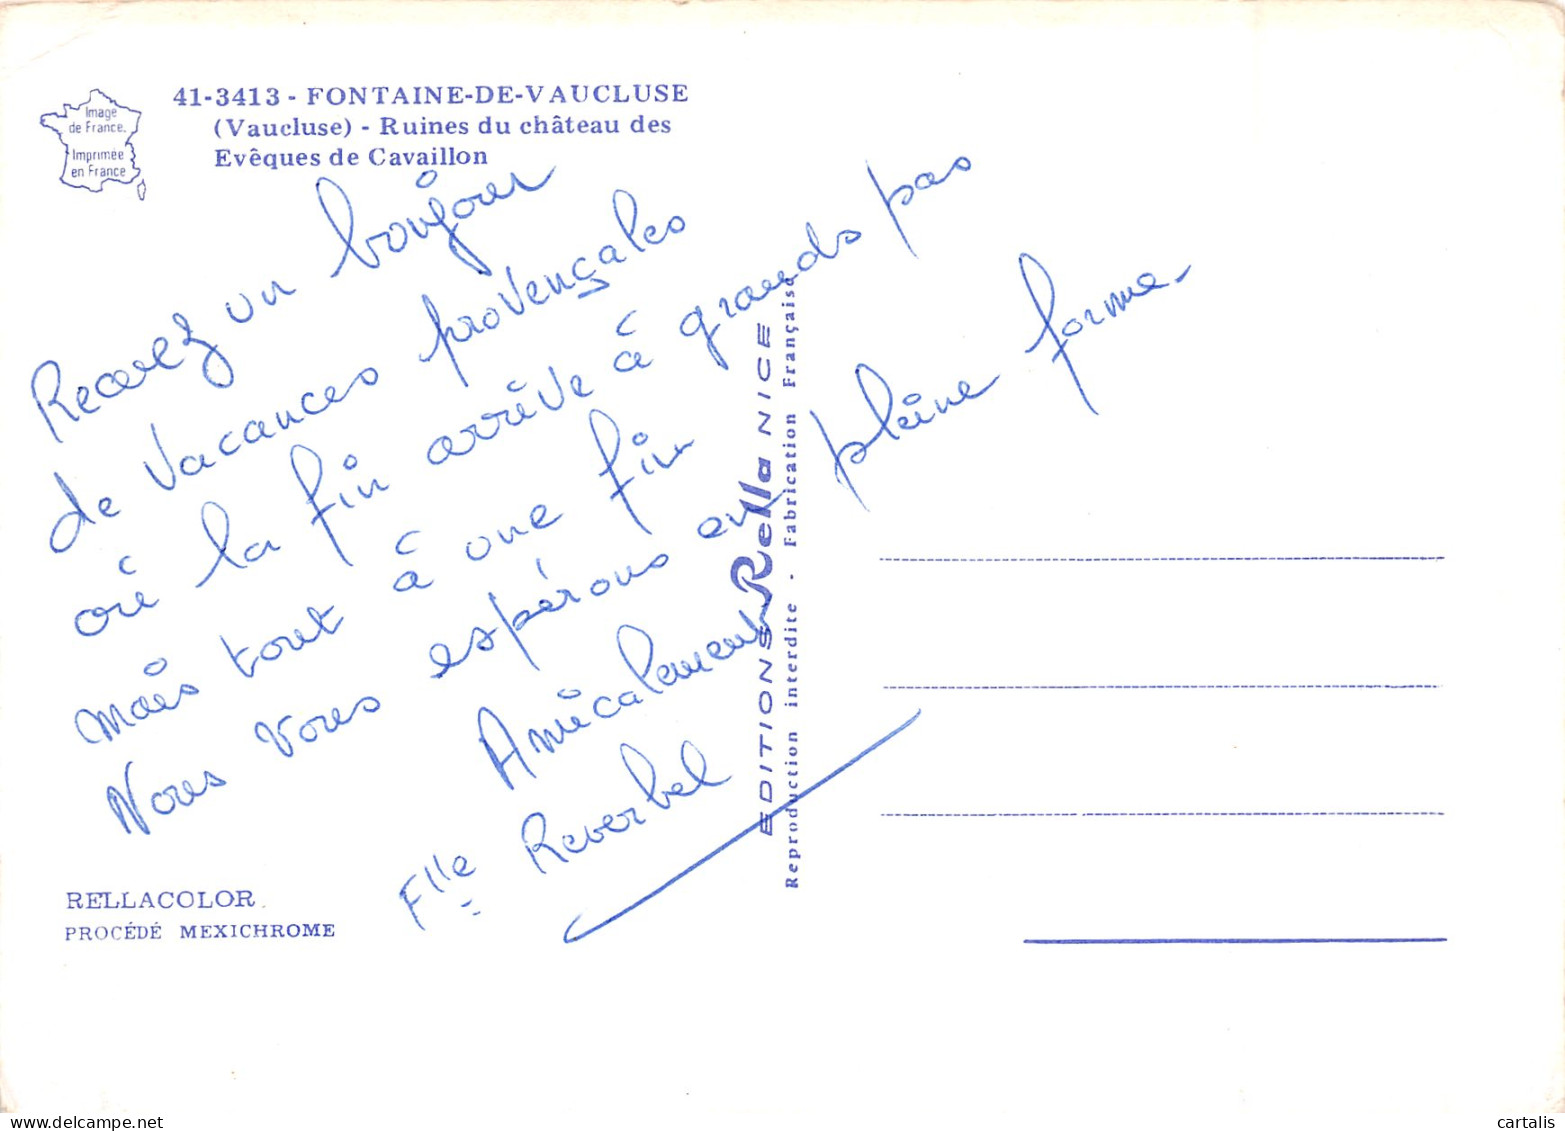 41-3413 - FONTAINE-DE-VAUCLUSE
(Vaucluse) - Ruines du château des
Evêques de Cavaillon
Image
de France.
Imprimée
en France
Recevez un bonjour
de vacances provençales
où la fin arrive à grands pas
mais tout à une fin
Nous vous espérons en pleine forme.
Amicalement
Flle Reverbel
EDITIONS Rella NICE
Reproduction interdite - Fabrication Française
RELLACOLOR
PROCÉDÉ MEXICHROME
delcampe.net
cartalis